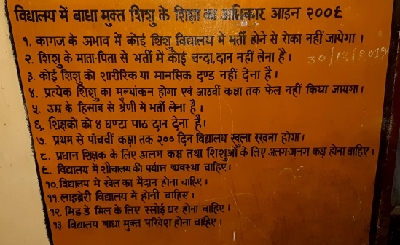 विद्यालय में बाधा मुक्त शिशु के शिक्षा का अधिकार आइन २००६
१. कागज के अभाव में कोई शिशु विद्यालय में भर्ती होने से रोका नहीं जायेगा।
२. शिशु के माता-पिता से भर्ती में कोई चन्दा, दान नहीं लेना है।
३. कोई शिशु को शारीरिक या मानसिक दण्ड नहीं देना है।
४. प्रत्येक शिशु का मूल्यांकन होगा एवं आठवीं कक्षा तक फेल नहीं किया जायगा।
५. उम्र के हिसाब से श्रेणी में भर्ती लेना है।
६. शिक्षकों को ४ घण्टा पाठ दान देना है।
७. प्रथम से पाँचवीं कक्षा तक २०० दिन विद्यालय खुला रखना होगा।
८. प्रधान शिक्षक के लिए अलग कक्ष तथा शिशुओं के लिए अलग-अलग कक्ष होना चाहिए।
९. विद्यालय में शौचालय की पर्याप्त व्यवस्था चाहिए।
१०. विद्यालय में खेल का मैदान होना चाहिए।
११. लाइब्रेरी विद्यालय में होनी चाहिए।
१२. मिड डे मिल के लिए रसोई घर होना चाहिए।
१३. विद्यालय बाधा मुक्त परिवेश होना चाहिए।